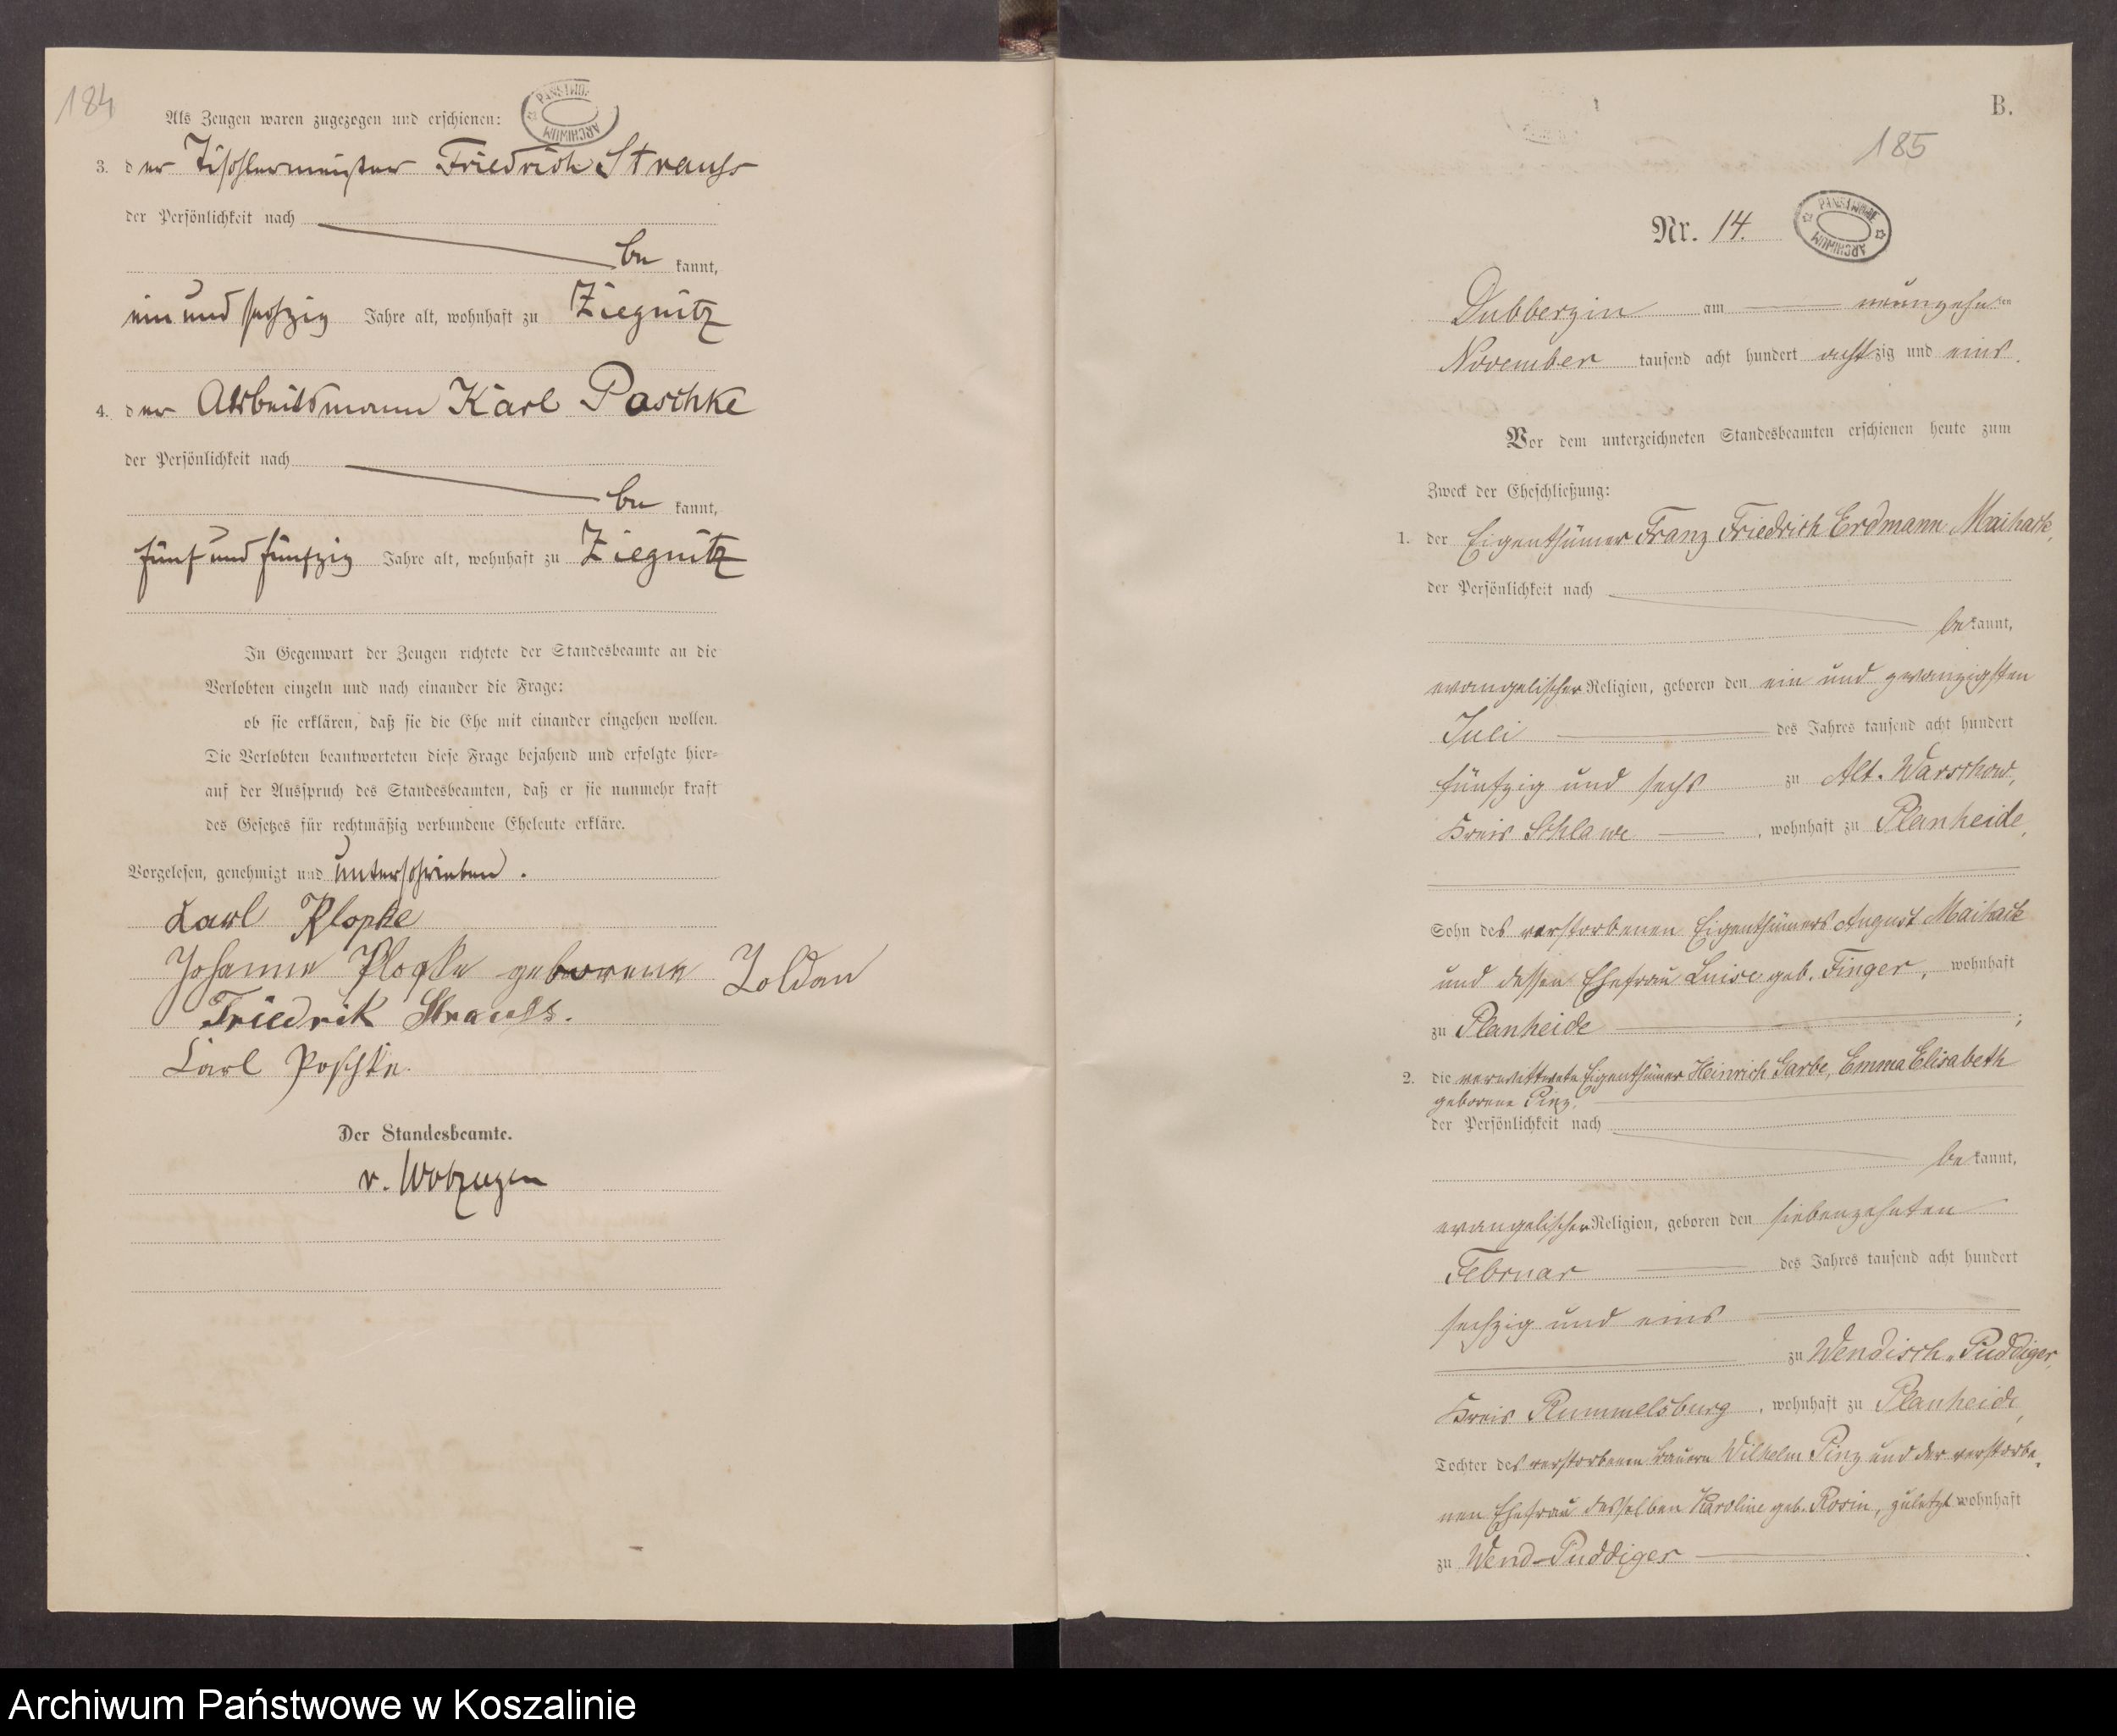 184
Als Zeugen waren zugezogen und erschienen:
PAŃSTWOWE ARCHIWUM
3. der Tischlermeister Friedrich Strauss
der Persönlichkeit nach
be kannt,
ein und sechzig Jahre alt, wohnhaft zu Ziegnitz
4. der Arbeitsmann Karl Paschke
der Persönlichkeit nach
be kannt,
fünf und fünfzig Jahre alt, wohnhaft zu Ziegnitz
In Gegenwart der Zeugen richtete der Standesbeamte an die
Verlobten einzeln und nach einander die Frage:
ob sie erklären, daß sie die Ehe mit einander eingehen wollen.
Die Verlobten beantworteten diese Frage bejahend und erfolgte hier-
auf der Ausspruch des Standesbeamten, daß er sie nunmehr kraft
des Gesetzes für rechtmäßig verbundene Eheleute erkläre.
Vorgelesen, genehmigt und unterschrieben.
Karl Klopke
Johanne geborene Zoldan
Friedrik Strauss.
Carl Poschke.
Der Standesbeamte.
v.
B.
185
Nr. 14.
PAŃSTWOWE ARCHIWUM
Dubberzin am neunzehnten
November tausend acht hundert achtzig und eins.
Vor dem unterzeichneten Standesbeamten erschienen heute zum
Zweck der Eheschließung:
1. der Eigenthümer Franz Friedrich Erdmann Maihack,
der Persönlichkeit nach
be kannt,
evangelischer Religion, geboren den ein und zwanzigsten
Juli des Jahres tausend acht hundert
fünfzig und sechs zu Alt-Warschow,
Kreis Schlawe, wohnhaft zu Planheide,
Sohn des verstorbenen Eigenthümers August Maihack
und dessen Ehefrau Luise geb. Finger, wohnhaft
zu Planheide;
2. die verwittwete Eigenthümer Heinrich Garbe, Emma Elisabeth
geborene Pinz,
der Persönlichkeit nach
be kannt,
evangelischer Religion, geboren den siebenzehnten
Februar des Jahres tausend acht hundert
sechzig und eins
zu Wendisch-Puddiger,
Kreis Rummelsburg, wohnhaft zu Planheide,
Tochter des verstorbenen Bauern Wilhelm Pinz und der verstorbe-
nen Ehefrau desselben Karoline geb. Rosin, zuletzt wohnhaft
zu Wend-Puddiger.
Archiwum Państwowe w Koszalinie